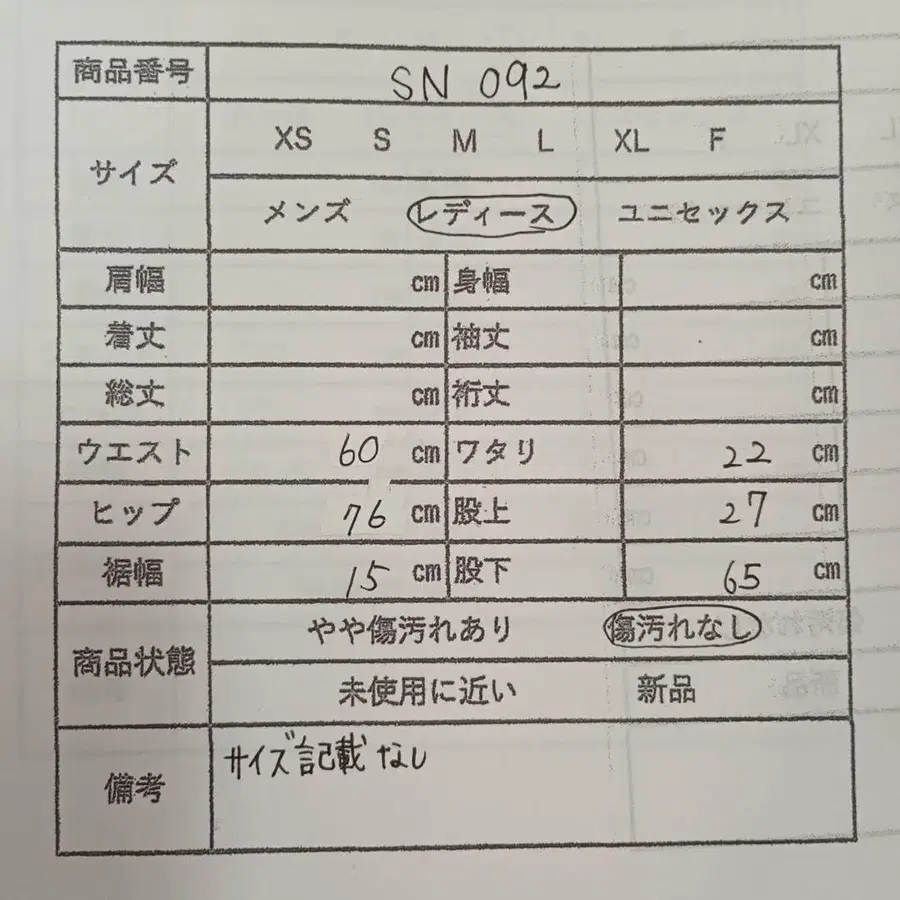 商品番号 SN 092
サイズ XS S M L XL F
メンズ レディース ユニセックス
肩幅 cm 身幅 cm
着丈 cm 袖丈 cm
総丈 cm 裄丈 cm
ウエスト 60 cm ワタリ 22 cm
ヒップ 76 cm 股上 27 cm
裾幅 15 cm 股下 65 cm
商品状態 やや傷汚れあり 傷汚れなし
未使用に近い 新品
備考 サイズ記載なし